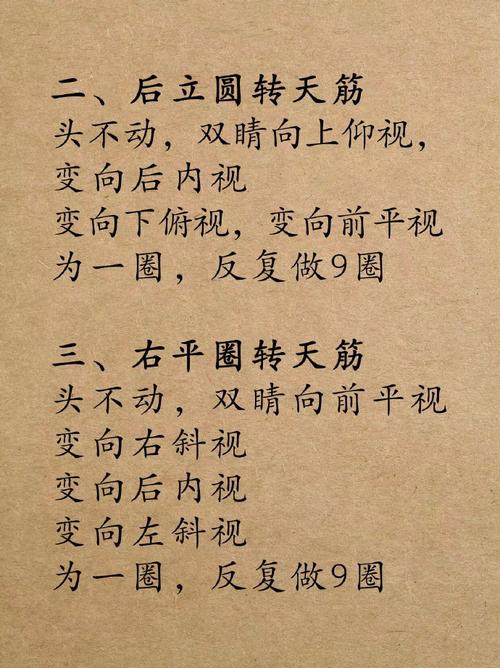 二、后立圆转天筋
头不动，双睛向上仰视，
变向后内视
变向下俯视，变向前平视
为一圈，反复做9圈
三、右平圈转天筋
头不动，双睛向前平视
变向右斜视
变向后内视
变向左斜视
为一圈，反复做9圈